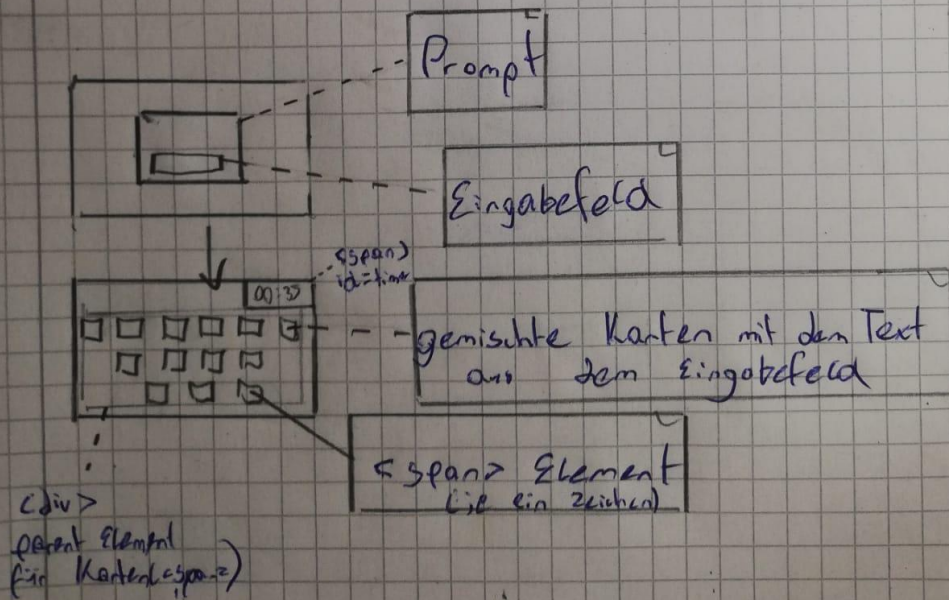 Prompt
Eingabefeld
<span>
id=timer
00:35
gemischte Karten mit dem Text
aus dem Eingabefeld
<span> Element
(je ein Zeichen)
<div>
parent Element
für Karten(<span>)